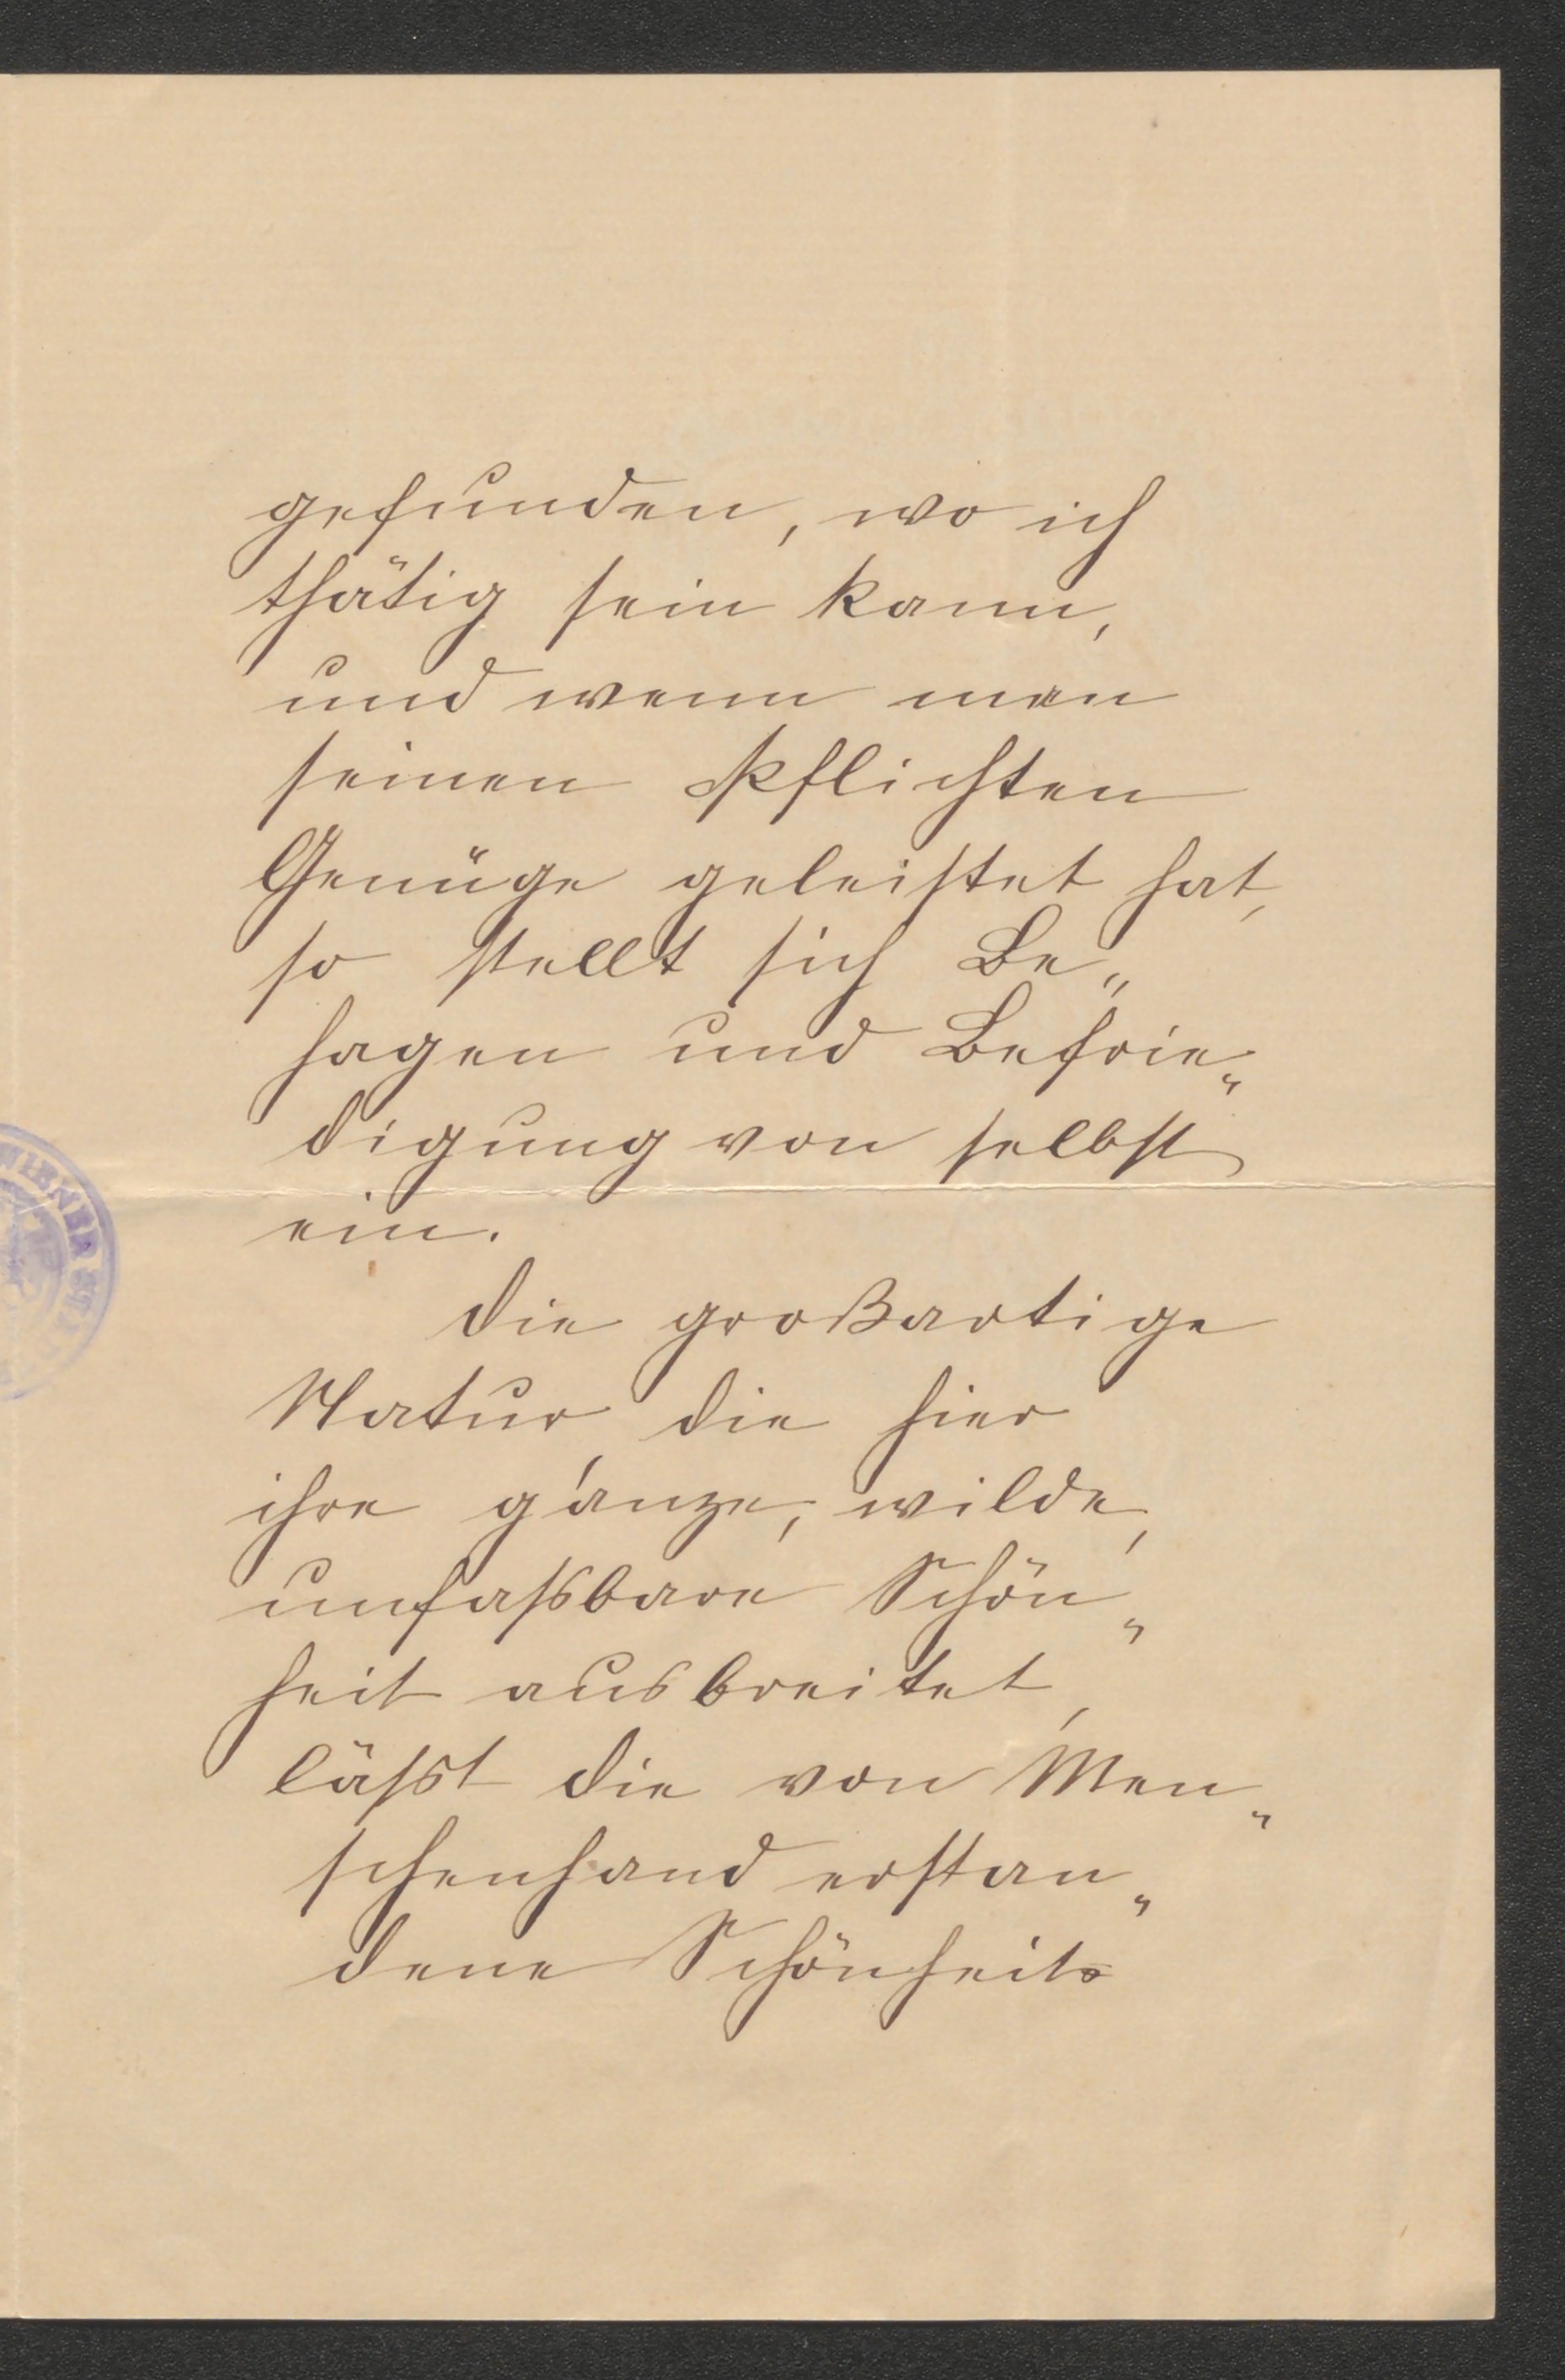 gefunden, wo ich
thätig sein kann,
und wenn man
seinen Pflichten
Genüge geleistet hat,
so stellt sich Be„
hagen und Befrie„
digung von selbst
ein.
Die großartige
Natur, die hier
ihre ganze, wilde,
unfassbare Schön„
heit ausbreitet,
lässt die von Men„
schenhand erstan„
dene Schönheits
WIENER STADT